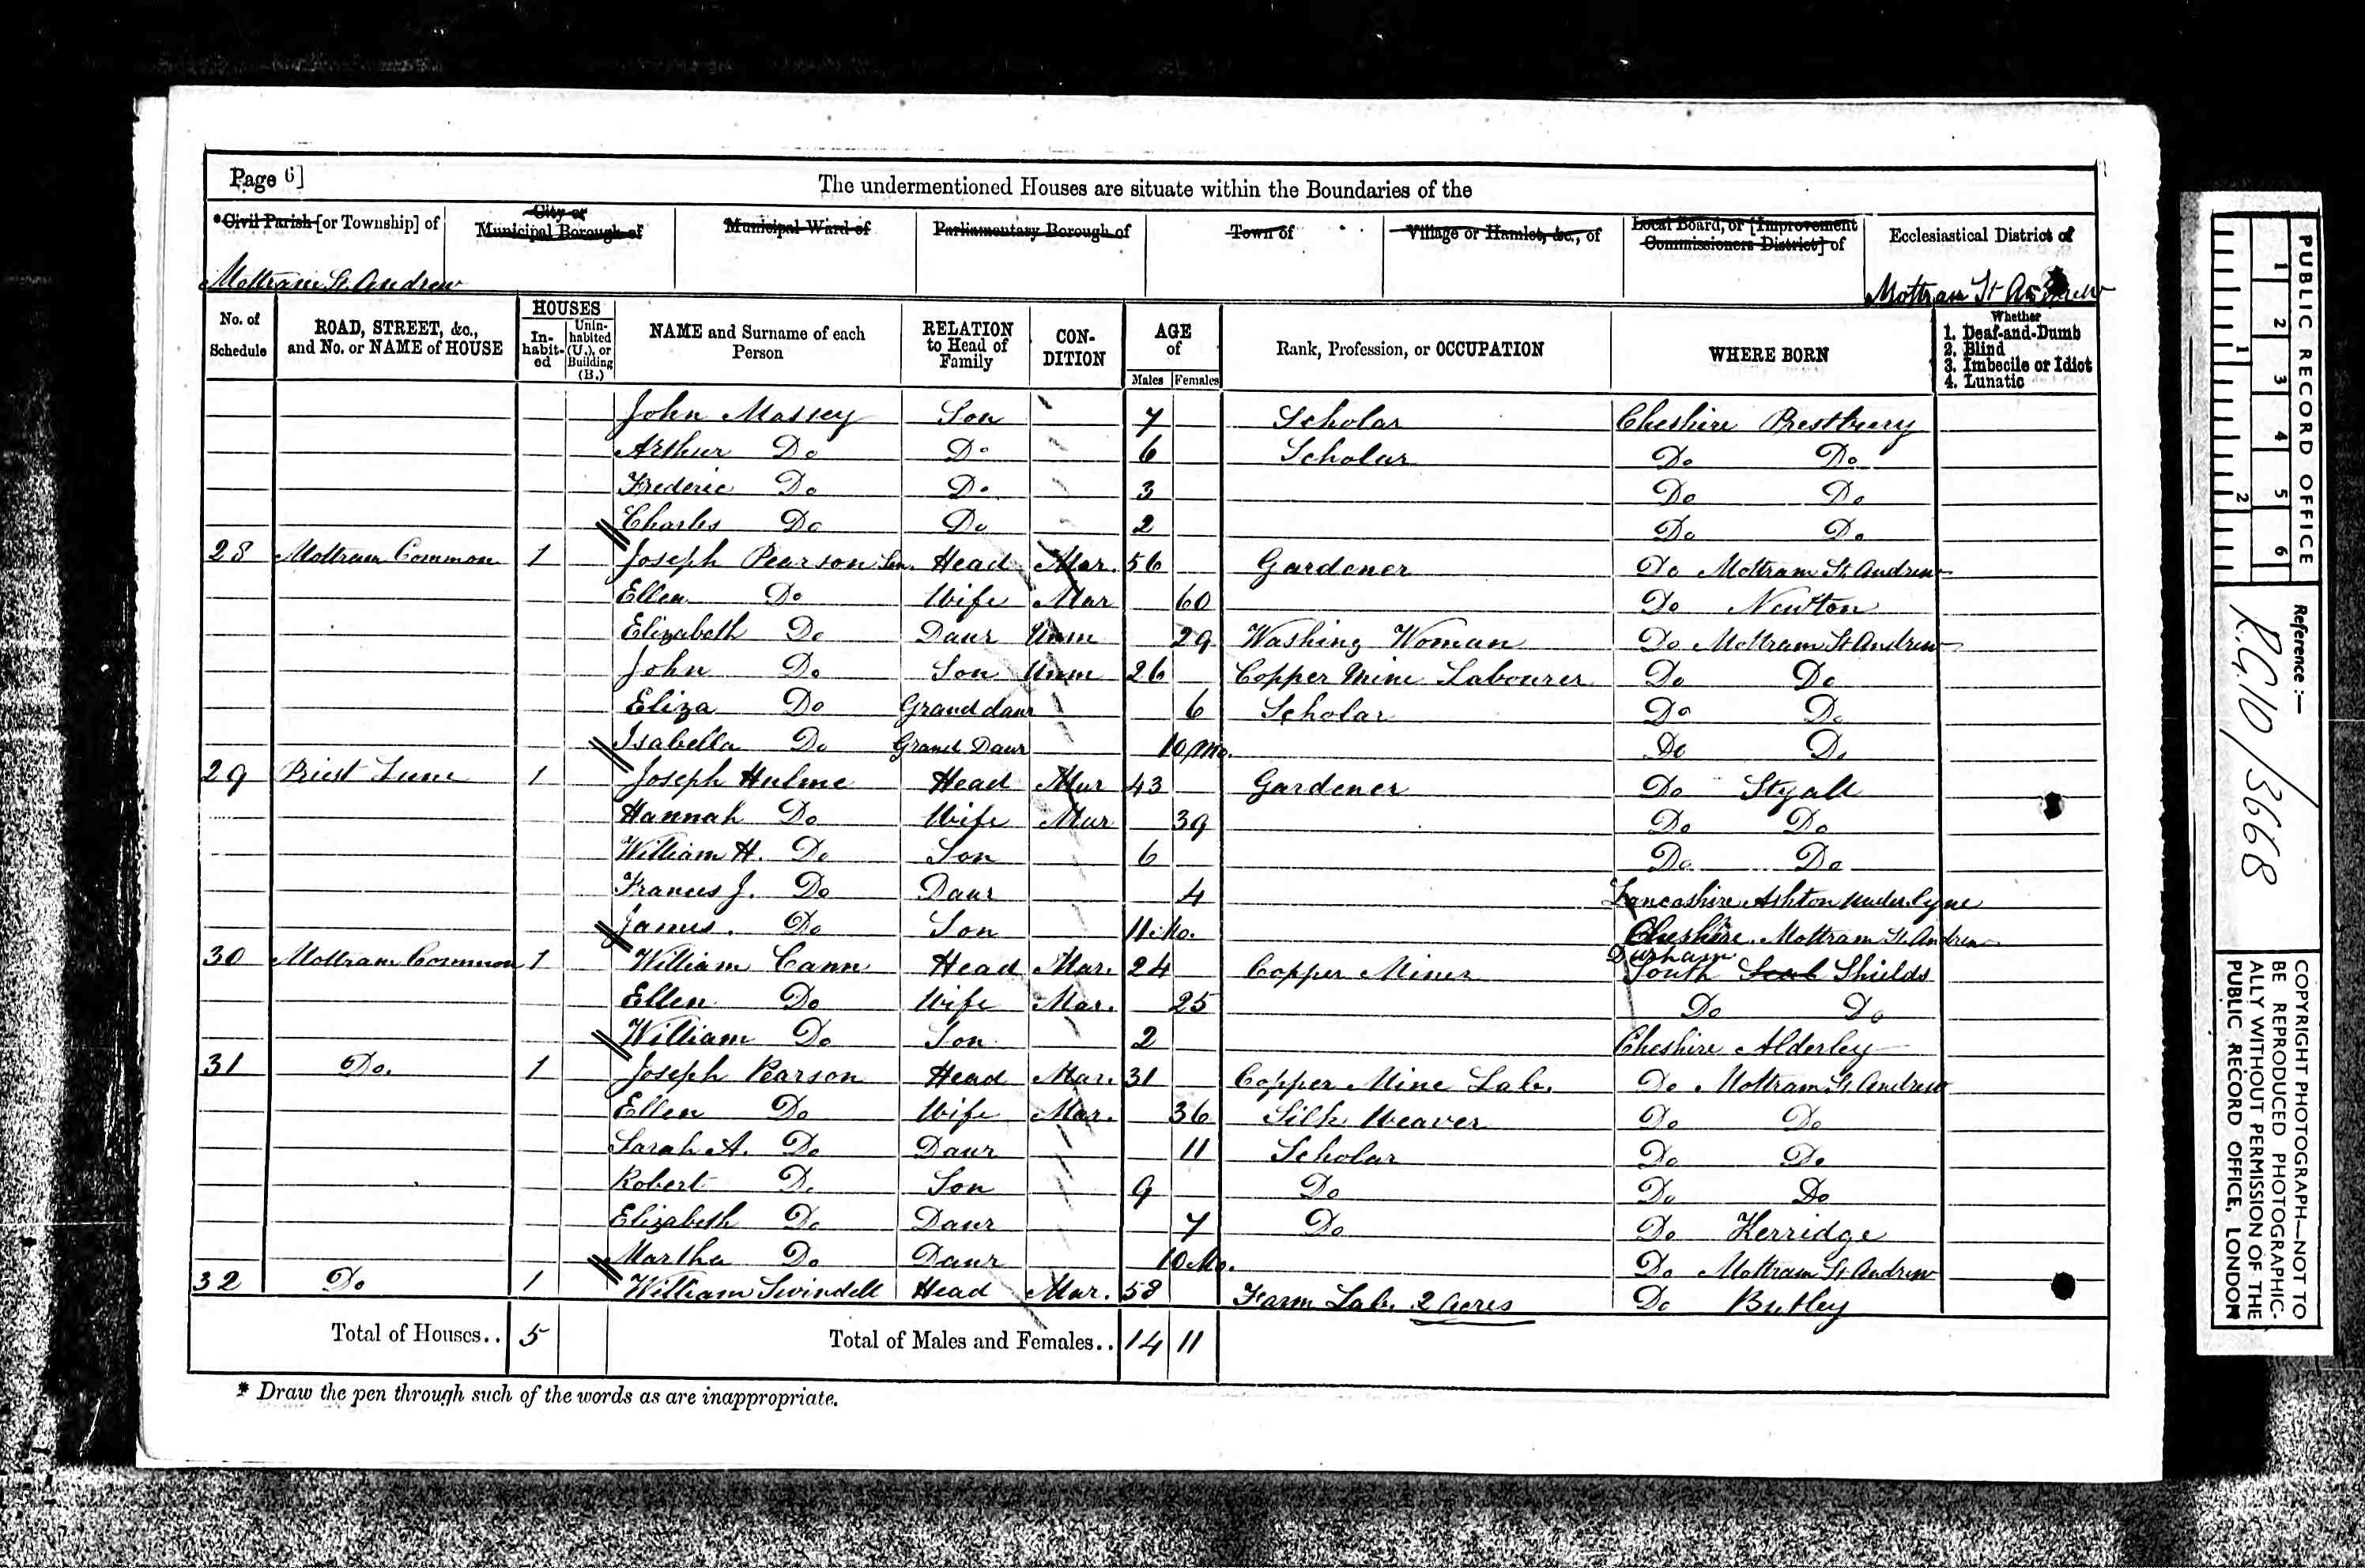 Page 6]
The undermentioned Houses are situate within the Boundaries of the
*Civil Parish [or Township] of
City or Municipal Borough of
Municipal Ward of
Parliamentary Borough of
Town of
Village or Hamlet, &c., of
Local Board, or [Improvement Commissioners District] of
Ecclesiastical District of
Mottram St. Andrew
Mottram St Andrew
No. of Schedule
ROAD, STREET, &c., and No. or NAME of HOUSE
HOUSES
In-habit-ed
Unin-habited (U.), or Building (B.)
NAME and Surname of each Person
RELATION to Head of Family
CON-DITION
AGE of
Males
Females
Rank, Profession, or OCCUPATION
WHERE BORN
Whether
1. Deaf-and-Dumb
2. Blind
3. Imbecile or Idiot
4. Lunatic
John Massey Son 7 Scholar Cheshire Prestbury
Arthur Do Do 6 Scholar Do Do
Frederic Do Do 3 Do Do
Charles Do Do 2 Do Do
28 Mottram Common 1 Joseph Pearson Sen. Head Mar. 56 Gardener Do Mottram St. Andrew
Ellen Do Wife Mar 60 Do Newton
Elizabeth Do Daur Unm 29 Washing Woman Do Mottram St Andrew
John Do Son Unm 26 Copper Mine Labourer Do Do
Eliza Do Grand daur 6 Scholar Do Do
Isabella Do Grand Daur 10 Mo. Do Do
29 Priest Lane 1 Joseph Hulme Head Mar 43 Gardener Do Styall
Hannah Do Wife Mar 39 Do Do
William H. Do Son 6 Do Do
Frances J. Do Daur 4 Lancashire Ashton under lyne
James. Do Son 11 Mo. Cheshire Mottram St. Andrew
30 Mottram Common 1 William Cann Head Mar. 24 Copper Miner Durham South Shields
Ellen Do Wife Mar. 25 Do Do
William Do Son 2 Cheshire Alderley
31 Do. 1 Joseph Pearson Head Mar. 31 Copper Mine Lab. Do Mottram St. Andrew
Ellen Do Wife Mar. 36 Silk Weaver Do Do
Sarah A. Do Daur 11 Scholar Do Do
Robert Do Son 9 Do Do Do
Elizabeth Do Daur 7 Do Do Kerridge
Martha Do Daur 10 Mo. Do Mottram St Andrew
32 Do 1 William Swindell Head Mar. 58 Farm Lab. 2 Acres Do Butley
Total of Houses.. 5 Total of Males and Females.. 14 11
* Draw the pen through such of the words as are inappropriate.
PUBLIC RECORD OFFICE
1 2 3 4 5 6
1 2
Reference :—
R.G.10/3668
COPYRIGHT PHOTOGRAPH—NOT TO
BE REPRODUCED PHOTOGRAPHIC-
ALLY WITHOUT PERMISSION OF THE
PUBLIC RECORD OFFICE, LONDON